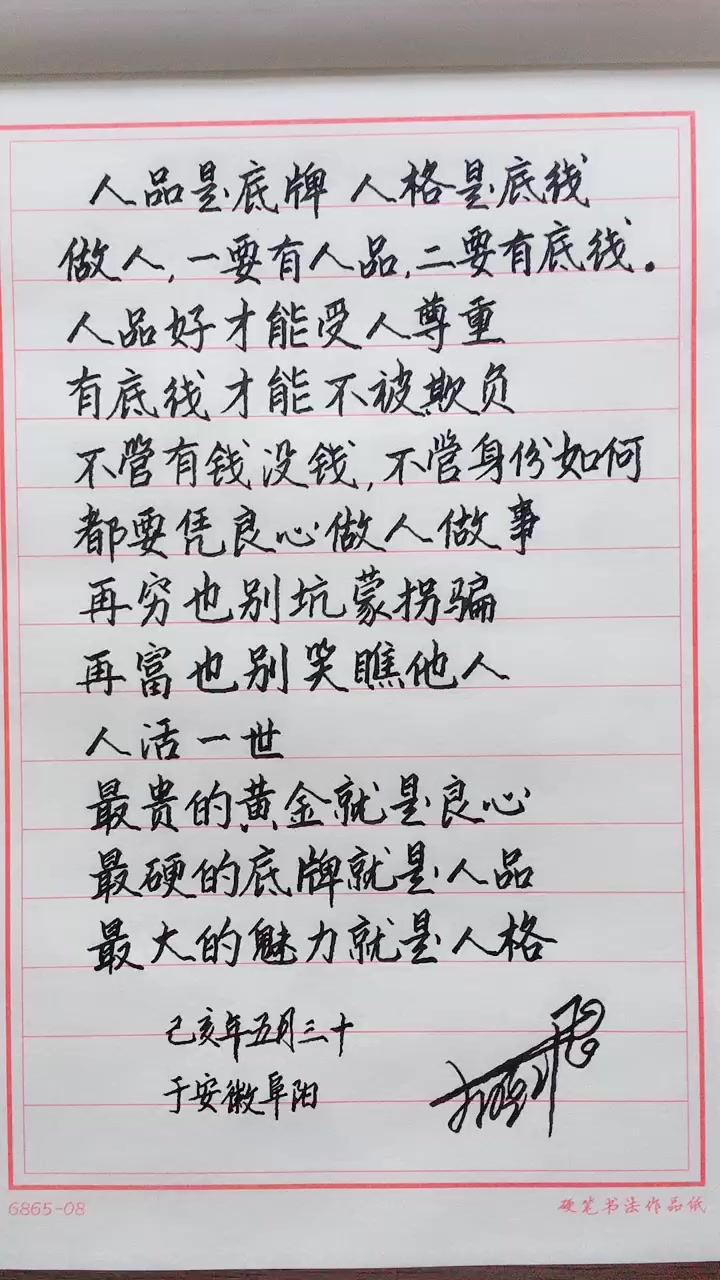 人品是底牌 人格是底线
做人,一要有人品,二要有底线。
人品好才能受人尊重
有底线才能不被欺负
不管有钱没钱,不管身份如何
都要凭良心做人做事
再穷也别坑蒙拐骗
再富也别笑瞧他人
人活一世
最贵的黄金就是良心
最硬的底牌就是人品
最大的魅力就是人格
己亥年五月三十
于安徽阜阳
6865-08
硬笔书法作品纸